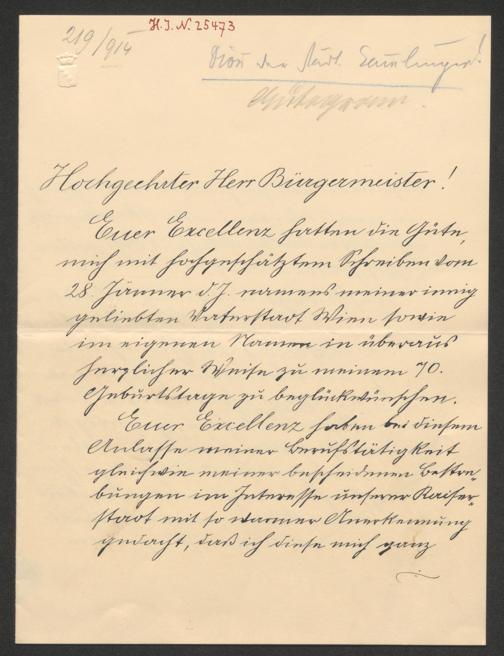 H.I.N. 25473
219/914
Dion der städt. Sammlungen!
Hochgeehrter Herr Bürgermeister!
Euer Excellenz hatten die Güte,
mich mit hochgeschätztem Schreiben vom
28. Jänner d.J. namens meiner innig
geliebten Vaterstadt Wien sowie
im eigenen Namen in überaus
herzlicher Weise zu meinem 70.
Geburtstage zu beglückwünschen.
Euer Excellenz haben bei diesem
Anlasse meiner Berufstätigkeit
gleichwie meiner bescheidenen Bestre-
bungen im Interesse unserer Kaiser-
stadt mit so warmer Anerkennung
gedacht, daß ich diese mich ganz